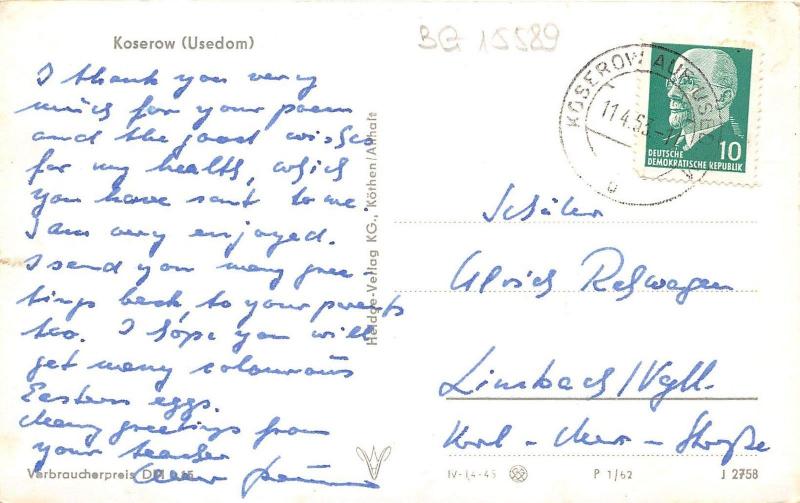 Koserow (Usedom)
BG 15589
I thank you very
much for your poem
and the good wishes
for my health, which
you have sent to me.
I am very enjoyed.
I send you many gree-
tings back, to your parents
too. I hope you will
get many colourous
Eastern eggs.
Many greetings from
your teacher
Verbraucherpreis DM 0,15
Heldge-Verlag KG., Köthen/Anhalt
KOSEROW AUF USEDOM
11.4.63
10
DEUTSCHE
DEMOKRATISCHE REPUBLIK
Schüler
Ulrich
Limbach/Vgtl.
Karl-Marx-Straße
IV-14-45
P 1/62
J 2758